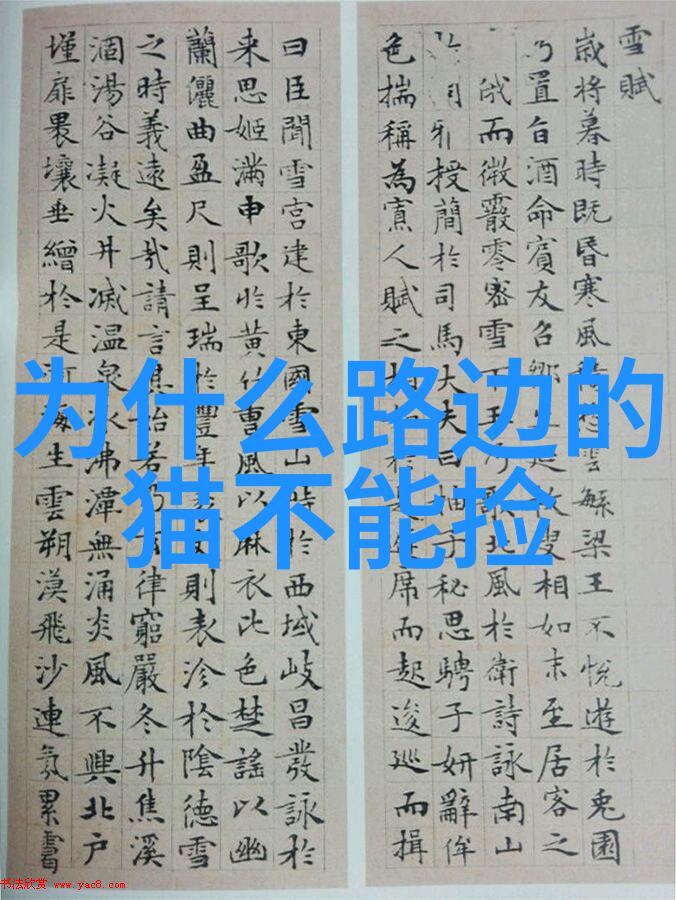 为什么路边的
猫不能捡
雪賦
歲將暮時既昏寒風愁雲繁梁王不悅遊於兎園
乃置旨酒命賓友召鄒生延枚叟相如末至居客之
俄而微霰零密雪下王乃歌北風於衛詩詠南山
雅授簡於司馬大夫曰抽子秘思騁子妍辭侔
色揣稱為寡人賦之相於是避席而起逡巡而揖
曰臣聞雪宮建於東國雪山峙於西域岐昌發詠於
来思姬滿申歌於黃竹曹風以麻衣比色楚謠以幽
蘭儷曲盈尺則呈瑞於豐年袤丈則表沴於陰德雪
之時義遠矣哉請言其始若乃玄律窮嚴冬升焦溪
涸湯谷凝火井滅温泉冰沸潭無涌炎風不興北戶
墐扉裸壤垂繒於是河海生雲朔漠飛沙連氛累靄
书法欣赏 www.yac8.com